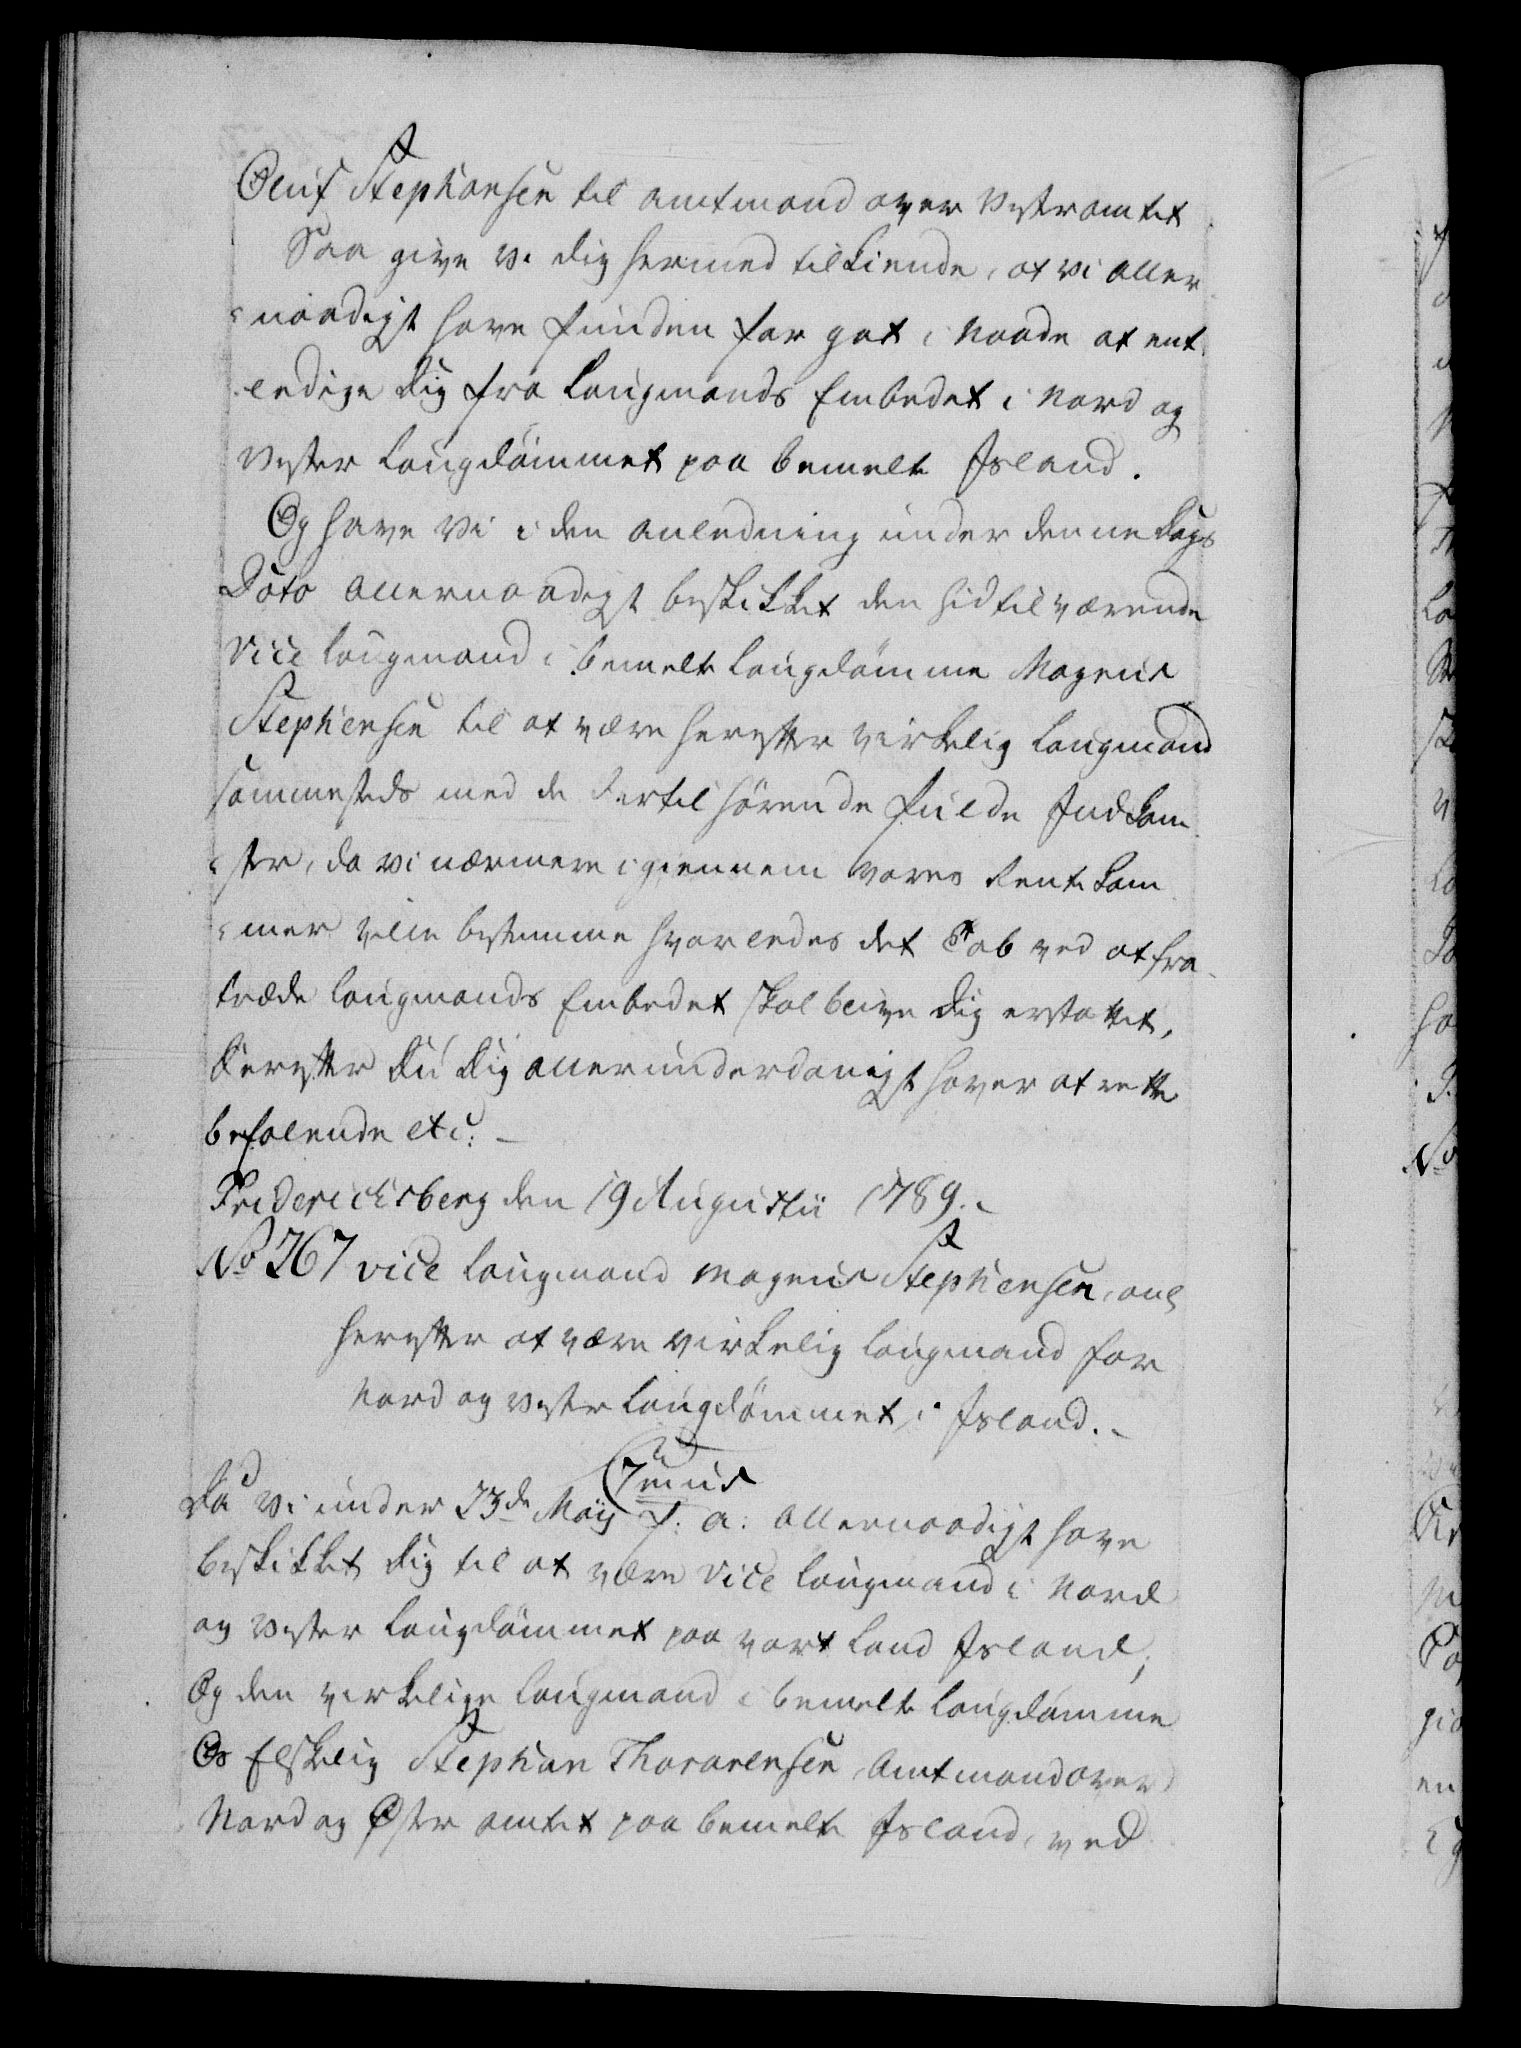 Oluf Stephansen til Amtmand over Vesteramtet
Saa give Vi dig hermed tilkiende, at Vi aller
naadigst have funden for got i Naade at ent
ledige dig fra Laugmands Embedet i Nord og
Vester Laugdømmet paa bemelte Island.
Og have Vi i den Anledning under denne Dags
Dato allernaadigst beskikket den hidtilværende
Vice Laugmand i bemelte Laugdømme Magnus
Stephensen til at være herefter virkelig Laugmand
sammesteds med de dertil hørende fulde Indkom
ster, da Vi nærmere igiennem Vores Rente Kam
mer ville bestemme hvorledes det Tab ved at fra
træde Laugmands Embedet skal blive dig erstattet,
Derefter Du Dig allerunderdanigst haver at rette
befalende etc: –
Friderichsberg den 19 Augustii 1789. –
No 267 Vice Laugmand Magnus Stephensen, ane
herefter at være virkelig Laugmand for
Nord og Vester Laugdømmet i Island. –
Genus
Da Vi under 23de Maij f: a: allernaadigst have
beskikket dig til at være Vice Laugmand i Nord
og Vester Laugdømmet paa Vort Land Island;
Og den virkelige Laugmand i bemelte Laugdømme
Os Elskelig Stephan Thorarensen, Amtmand over
Nord og Øster Amtet paa bemelte Island, ved